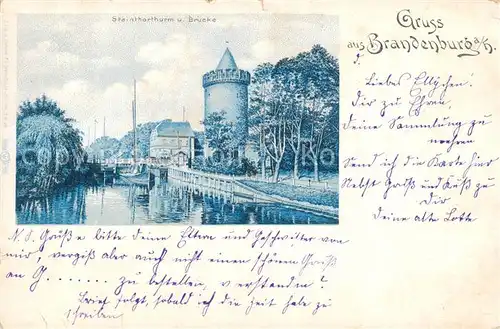 Steinthorthurm u. Brücke
Gruss
aus Brandenburg a/H.
Liebes Ellychen!
Dir zu Ehren,
deine Sammlung zu
mehren
Send ich die Karte hier
Nebst Gruß und Kuß zu
Dir
Deine alte Lotte
N. S. Grüße bitte deine Eltern und Geschwister von
mir, vergiß aber auch nicht einen schönen Gruß
an G........ zu bestellen, verstanden?
Brief folgt, sobald ich die Zeit habe zu
schreiben